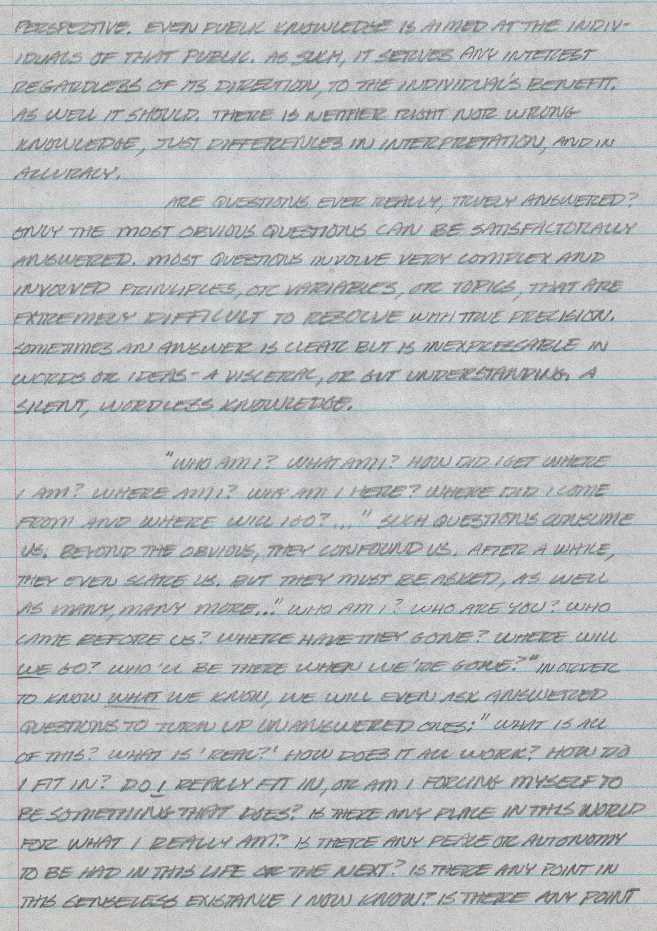 PERSPECTIVE. EVEN PUBLIC KNOWLEDGE IS AIMED AT THE INDIV-
IDUALS OF THAT PUBLIC. AS SUCH, IT SERVES ANY INTEREST
REGARDLESS OF ITS DIRECTION, TO THE INDIVIDUAL'S BENEFIT.
AS WELL IT SHOULD. THERE IS NEITHER RIGHT NOR WRONG
KNOWLEDGE, JUST DIFFERENCES IN INTERPRETATION, AND IN
ACCURACY.
ARE QUESTIONS EVER REALLY, TRUELY ANSWERED?
ONLY THE MOST OBVIOUS QUESTIONS CAN BE SATISFACTORALLY
ANSWERED. MOST QUESTIONS INVOLVE VERY COMPLEX AND
INVOLVED PRINCIPLES, OR VARIABLES, OR TOPICS, THAT ARE
EXTREMELY DIFFICULT TO RESOLVE WITH TRUE PRECISION.
SOMETIMES AN ANSWER IS CLEAR BUT IS INEXPRESSABLE IN
WORDS OR IDEAS - A VISCERAL, OR GUT UNDERSTANDING. A
SILENT, WORDLESS KNOWLEDGE.
"WHO AM I? WHAT AM I? HOW DID I GET WHERE
I AM? WHERE AM I? WHY AM I HERE? WHERE DID I COME
FROM AND WHERE WILL I GO?..." SUCH QUESTIONS CONSUME
US. BEYOND THE OBVIOUS, THEY CONFOUND US. AFTER A WHILE,
THEY EVEN SCARE US. BUT THEY MUST BE ASKED, AS WELL
AS MANY, MANY MORE..." WHO AM I? WHO ARE YOU? WHO
CAME BEFORE US? WHERE HAVE THEY GONE? WHERE WILL
WE GO? WHO'LL BE THERE WHEN WE'RE GONE?" IN ORDER
TO KNOW WHAT WE KNOW, WE WILL EVEN ASK ANSWERED
QUESTIONS TO TURN UP UNANSWERED ONES: "WHAT IS ALL
OF THIS? WHAT IS 'REAL?' HOW DOES IT ALL WORK? HOW DO
I FIT IN? DO I REALLY FIT IN, OR AM I FORCING MYSELF TO
BE SOMETHING THAT DOES? IS THERE ANY PLACE IN THIS WORLD
FOR WHAT I REALLY AM? IS THERE ANY PEACE OR AUTONOMY
TO BE HAD IN THIS LIFE OR THE NEXT? IS THERE ANY POINT IN
THIS SENSELESS EXISTANCE I NOW KNOW? IS THERE ANY POINT